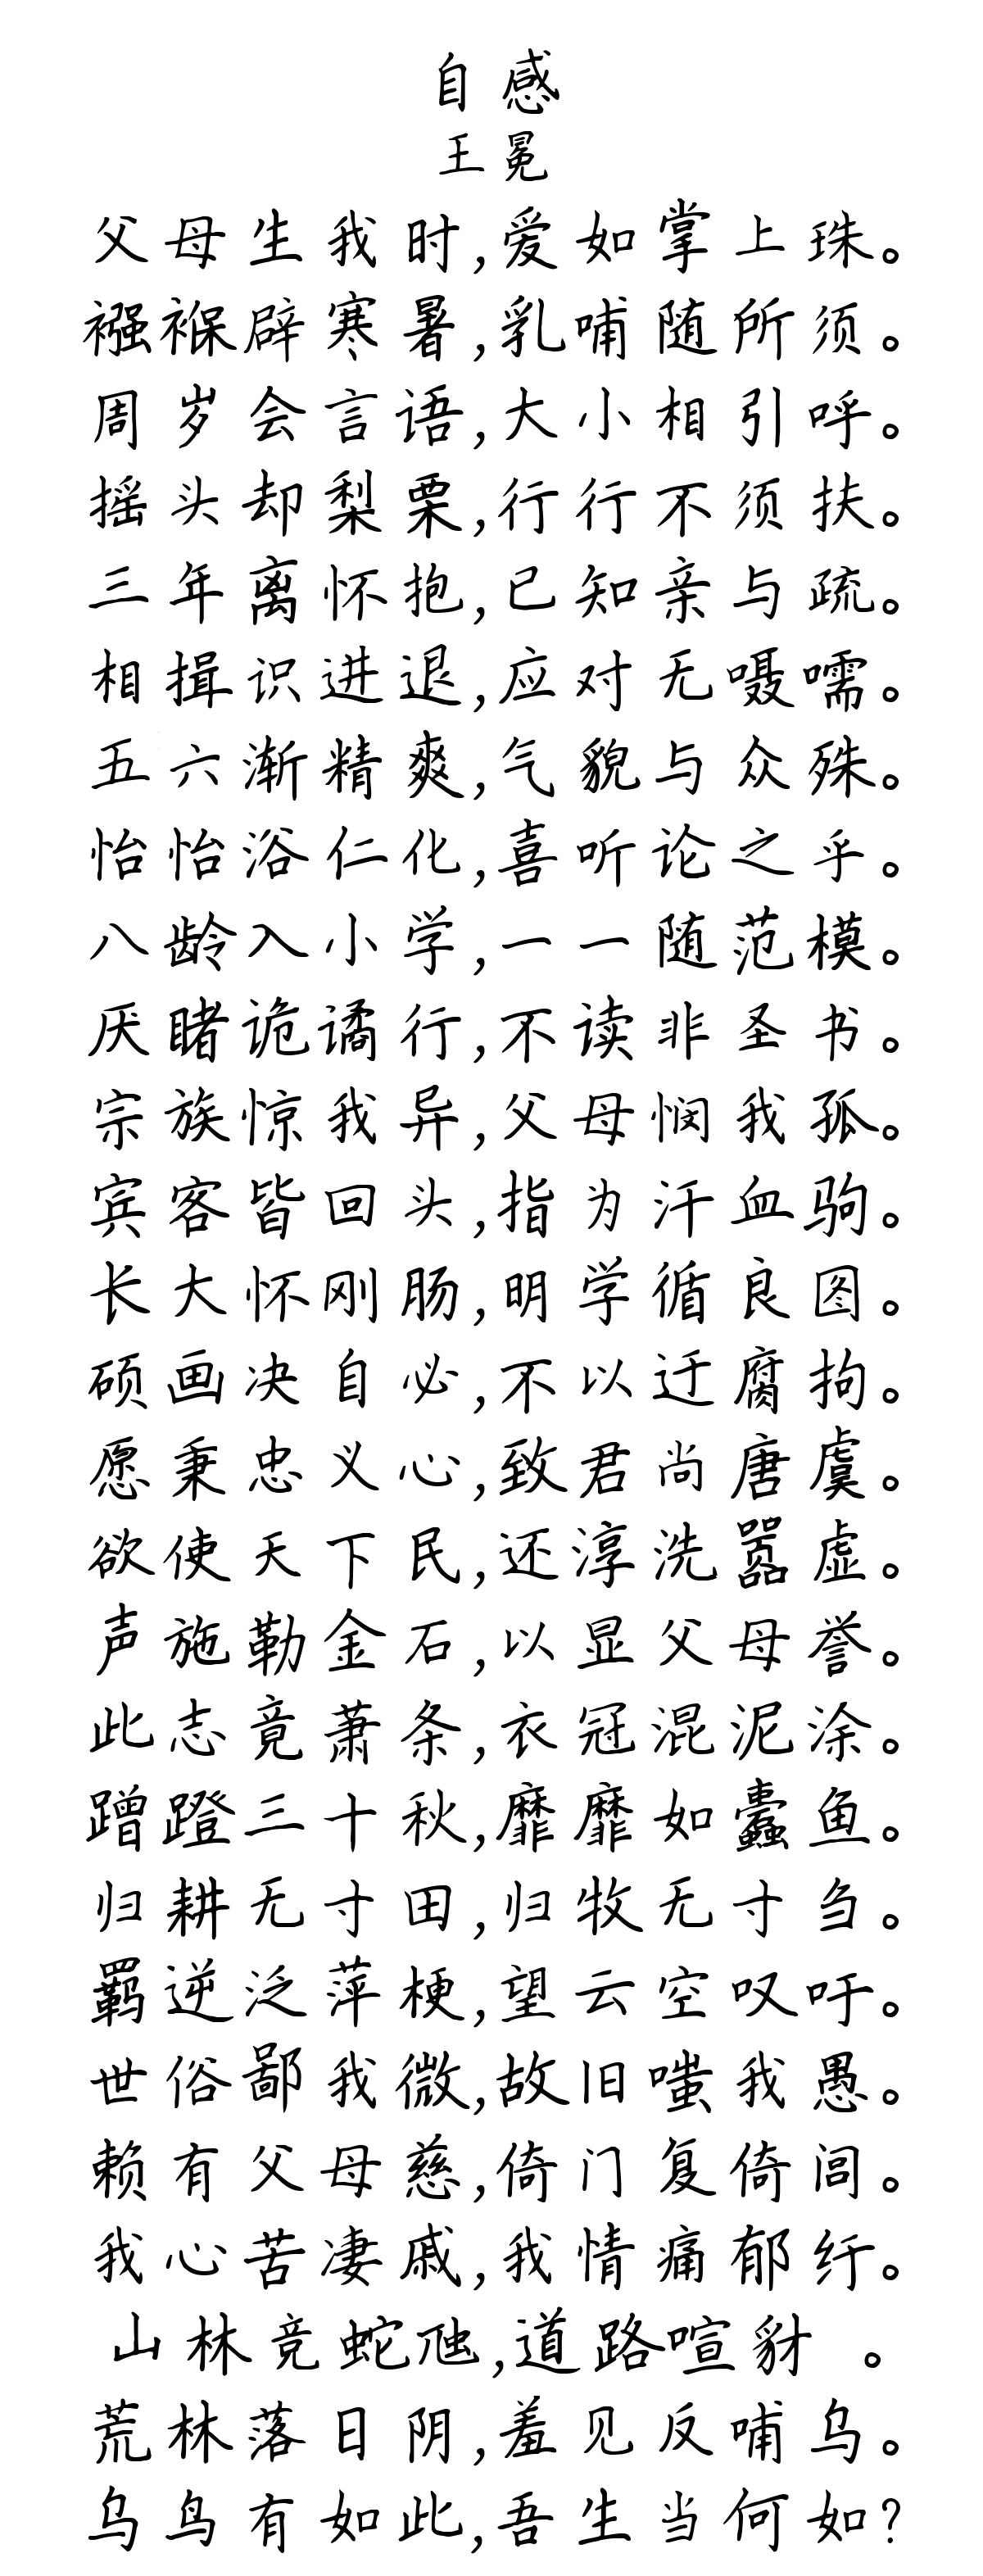 自感
王冕
父母生我时,爱如掌上珠。
襁褓辟寒暑,乳哺随所须。
周岁会言语,大小相引呼。
摇头却梨栗,行行不须扶。
三年离怀抱,已知亲与疏。
相揖识进退,应对无嗫嚅。
五六渐精爽,气貌与众殊。
怡怡浴仁化,喜听论之乎。
八龄入小学,一一随范模。
厌睹诡谲行,不读非圣书。
宗族惊我异,父母悯我孤。
宾客皆回头,指为汗血驹。
长大怀刚肠,明学循良图。
硕画决自必,不以迂腐拘。
愿秉忠义心,致君尚唐虞。
欲使天下民,还淳洗嚣虚。
声施勒金石,以显父母誉。
此志竟萧条,衣冠混泥涂。
蹭蹬三十秋,靡靡如蠹鱼。
归耕无寸田,归牧无寸刍。
羁逆泛萍梗,望云空叹吁。
世俗鄙我微,故旧嗤我愚。
赖有父母慈,倚门复倚闾。
我心苦凄戚,我情痛郁纡。
山林竞蛇虺,道路喧豺 。
荒林落日阴,羞见反哺乌。
乌鸟有如此,吾生当何如?